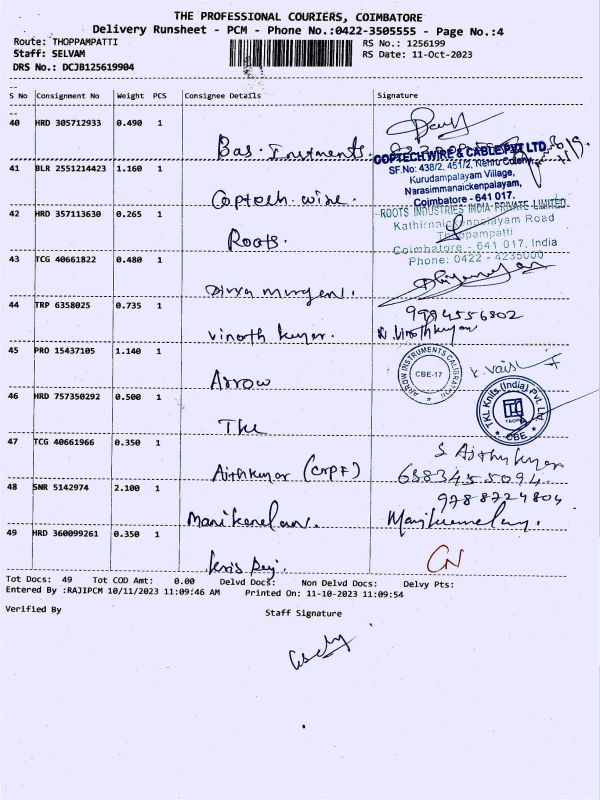 THE PROFESSIONAL COURIERS, COIMBATORE
Delivery Runsheet - PCM - Phone No.:0422-3505555 - Page No.:4
Route: THOPPAMPATTI
RS No.: 1256199
Staff: SELVAM
RS Date: 11-Oct-2023
DRS No.: DCJB125619904
S No Consignment No Weight PCS Consignee Details Signature
40 HRD 305712933 0.490 1
Bas. Instments.
41 BLR 2551214423 1.160 1
COPTECH WIRE & CABLE PVT LTD
SF.No: 438/2, 451/2, Nehru Colony,
Kurudampalayam Village,
Narasimmanaickenpalayam,
Coimbatore - 641 017.
Coptech wire.
42 HRD 357113630 0.265 1
ROOTS INDUSTRIES INDIA PRIVATE LIMITED
Kathirnaickenpalayam Road
Thoppampatti
Coimbatore - 641 017, India
Phone: 0422 - 4235000
Roots.
43 TCG 40661822 0.480 1
murgan.
44 TRP 6358025 0.735 1
9994556802
Vinoth kumar.
45 PRO 15437105 1.140 1
ARROW INSTRUMENTS CALIBRATION
CBE-17
Arrow
46 HRD 757350292 0.500 1
TKL Knits (India) Pvt. Ltd
CBE
The
47 TCG 40661966 0.350 1
Ajithkumar (CRPF)
6383455094
48 SNR 5142974 2.100 1
9788724804
Manikandan.
49 HRD 360099261 0.350 1
CN
Tot Docs: 49 Tot COD Amt: 0.00 Delvd Docs: Non Delvd Docs: Delvy Pts:
Entered By :RAJIPCM 10/11/2023 11:09:46 AM Printed On: 11-10-2023 11:09:54
Verified By Staff Signature